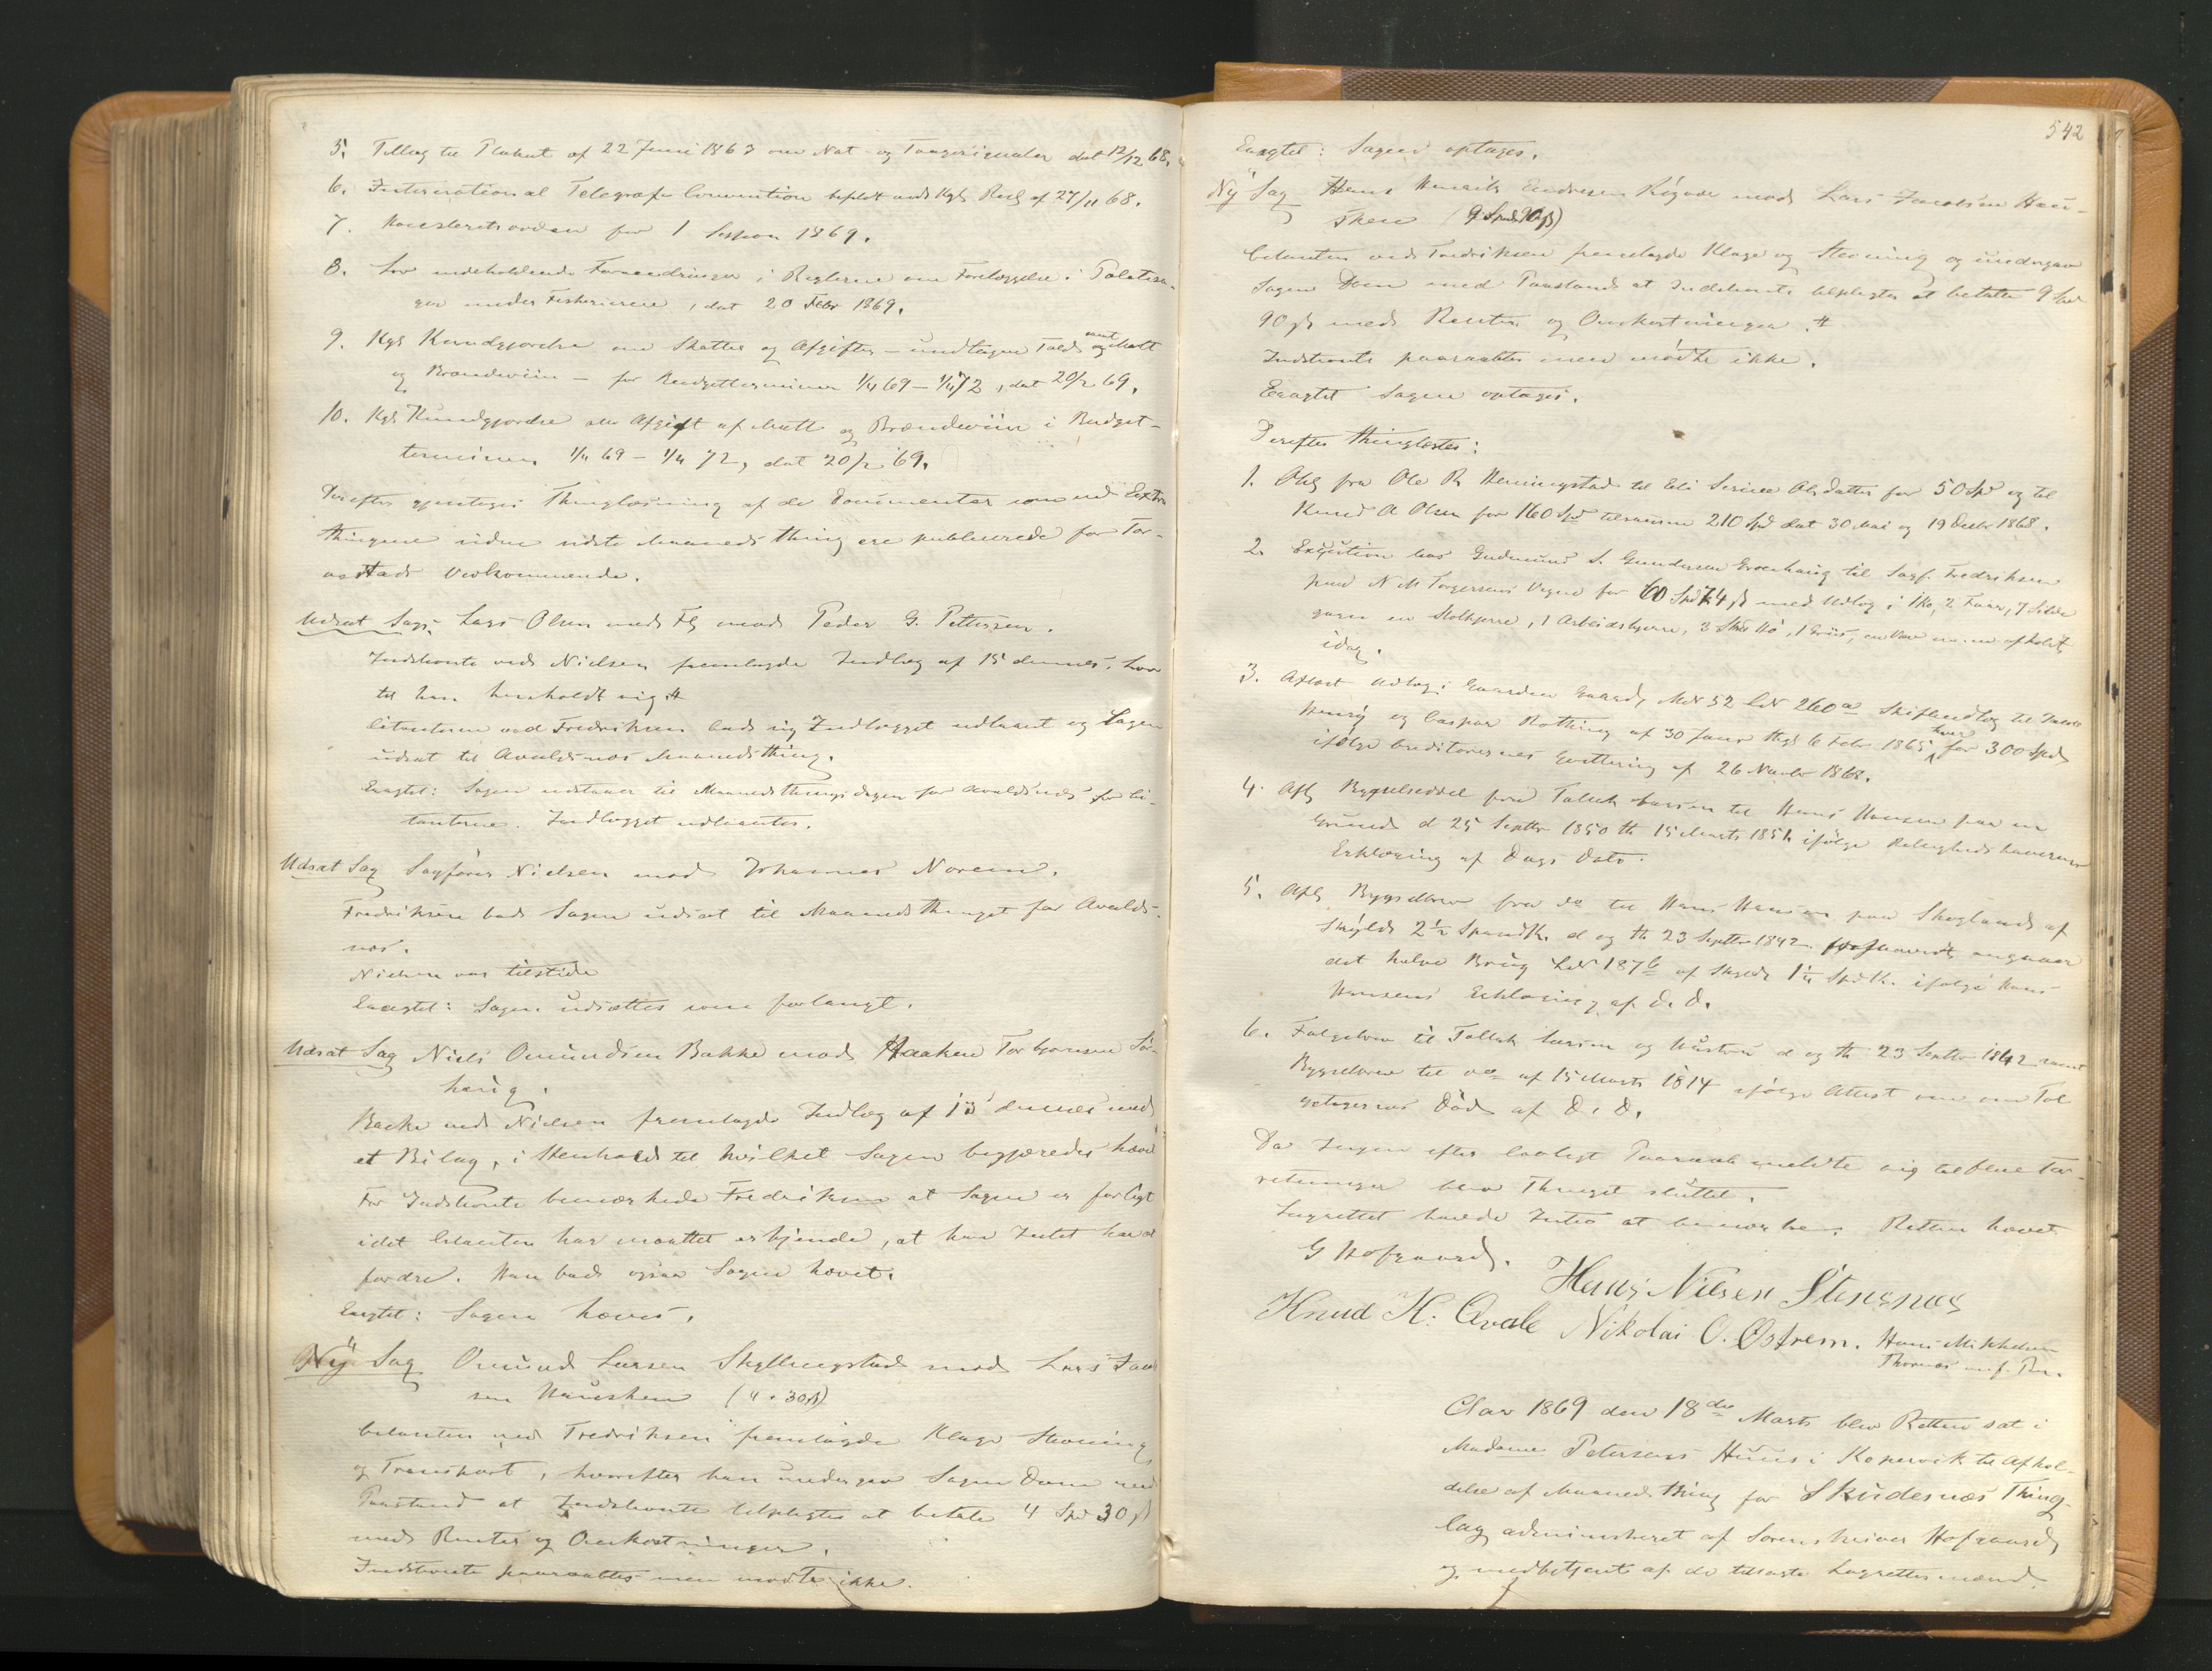 5. Tillæg til Plakat af 22 Juni 1863 om Nat- og Taagesignaler dat 12/12 68.
6. International Telegraf Convention ved Kgl. Resl af 27/11 68.
7. for 1 Session 1869.
8. Lov indeholdende Forandringer i Reglerne om Forelæggelse i Politisa-
ger under Fiskerierne, dat 20 Febr 1869.
9. Kgl Kundgjørelse om Skatter og Afgifter – undtagen Told samt Malt
og Brændeviin – for Budgetterminen 1/4 69 – 1/4 72, dat 20/2 69.
10. Kgl Kundgjørelse om Afgift af Malt og Brændeviin i Budget-
terminen 1/4 69 – 1/4 72, dat 20/2 69.
Derefter gjentoges Thinglæsning af de Documenter som ved Extra
thingene siden sidste Maanedsthing ere publicerede for Tor-
vestads Vedkommende.
Udsat Sag. Lars Olsen med Fl mod Peder G. Pettersen.
Indstevnte ved Nielsen fremlagde Indlæg af 15 dennes, hvor
til han henholdt sig #
Citanterne ved Fredriksen bad sig Indlægget udlaant og Sagen
udsat til Avaldsnæs Maanedsthing.
Eragtet: Sagen udstaaer til Maanedsthingsdagen for Avaldsnæs for Ci-
tanterne. Indlægget udlaantes.
Udsat Sag Sagfører Nielsen mod Johannes Norem.
Fredriksen bad Sagen udsat til Maanedsthinget for Avalds-
næs.
Nielsen var tilstede
Eragtet: Sagen udsættes som forlangt.
Udsat Sag Niels Omundsen Bakke mod Haaken Torbjørnsen Sør-
haug.
Bakke ved Nielsen fremlagde Indlæg af 13 dennes med
et Bilag, i Henhold til hvilket Sagen begjæredes hævet
For Indstevnte bemærkede Fredriksen at Sagen er forligt
idet Citanten har maattet erkjende, at han Intet har at
fordre. Han bad ogsaa Sagen hævet.
Eragtet: Sagen hæves.
Ny Sag Omund Larsen Skyllingstad mod Lars Jacob
sen Hausken (4 " 30 ß)
Citanten ved Fredriksen fremlagde Klage Stevning
og Transport, hvorefter han undergav Sagen Dom med
Paastand at Indstevnte tilpligtes at betale 4 Spd 30 ß
med Renter og Omkostninger.
Indstevnte paaraabtes men mødte ikke.
542
Eragtet: Sagen optages.
Ny Sag Hans Henrik Endresen mod Lars Jacobsen Hau-
sken (9 Spd 90 ß)
Citanten ved Fredriksen fremlagde Klage og Stevning og undergav
Sagen Dom med Paastand at Indstevnte tilpligtes at betale 9 Spd
90 ß med Renter og Omkostninger. #
Indstevnte paaraabtes men mødte ikke.
Eragtet Sagen optages.
Derefter thinglæstes:
1. Obl fra Ole R Henningstad til Eli Serine Olsdatter for 50 Spd og til
Knud A Olsen for 160 Spd tilsammen 210 Spd dat 30 Mai og 19 Decbr 1868.
2. Execution hos Gudmund S. Gundersen til Sagf. Fredriksen
paa N M Torgersens Vegne for 60 Spd 74 ß med Udlæg i 1 Ko, 2 Faar, 7
en Stolkjerre, 1 Arbeidskjerre, 3 Hø, 1 Griis, afholdt
idag.
3. Aflæst Udlæg i Gaarden Gaard, MN 52 LN 260 a Skifteudlæg til
og Caspar Rothing af 30 Januar thgl 6 Febr 1865 hver for 300 Spd
ifølge Creditorernes Qvittering af 26 Novbr 1868.
4. Afl Bygselseddel fra Tallak Larsen til Hans Hansen paa en
Grund d 25 Septbr 1850 th 15 Marts 1851 ifølge Rettighedshaverens
Erklæring af Dags Dato.
5. Afl Bygselbrev fra do til Hans Hansen paa Skeglands af
Skyld 2½ Spandk. d og th 23 Septbr 1842 angaaer
det halve Brug LN 187 b af Skyld 1¼ Spdk. ifølge Hans
Hansens Erklæring af D. D.
6. Følgebrev til Tallak Larsen og Hustru d og th 23 Septbr 1842 samt
Bygselbrev til do af 15 Marts 1814 ifølge Attest om
Død af D. D.
Da Ingen efter lovligt Paaraab meldte sig til flere For-
retninger blev Thinget sluttet.
Lagrettet havde Intet at bemærke. Retten hævet
G Hofgaard.
Hans Nilsen Stensnæs
Knud K: Qvale Nikolai O. Østrem. Hans Mikkelsen
Thornæs m. f. Pen.
Aar 1869 den 18de Marts blev Retten sat i
Madame Petersens Huus i Kopervik til Afhol-
delse af Maanedsthing for Skudesnæs Thing-
lag administreret af Sorenskriver Hofgaard
og medbetjent af de tilsagte Lagrettesmænd.